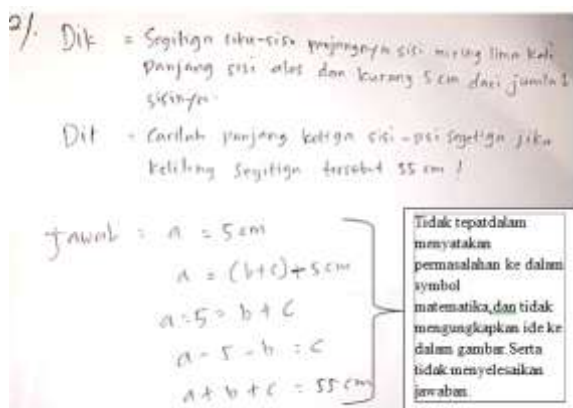 2/. Dik = Segitiga siku-siku panjangnya sisi miring lima kali
panjang sisi alas dan kurang 5 cm dari jumlah
sisinya.
Dit = Carilah panjang ketiga sisi-sisi segitiga jika
keliling segitiga tersebut 55 cm !
Jawab : a = 5 cm
a = (b+c) + 5 cm
a - 5 = b + c
a - 5 - b = c
a + b + c = 55 cm
Tidak tepatdalam
menyatakan
permasalahan ke dalam
symbol
matematika,dan tidak
mengungkapkan ide ke
dalam gambar. Serta
tidak menyelesaikan
jawaban.